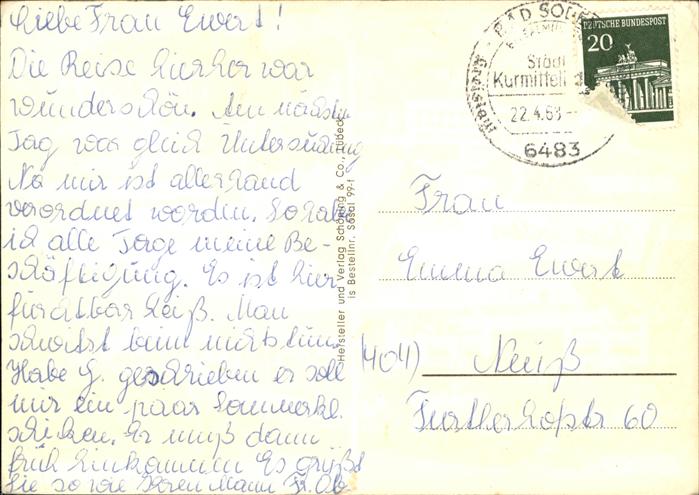 Liebe Frau Ewert!
Die Reise hierher war
wunderschön. Am nächsten
Tag war gleich Untersuchung
Na mir ist allerhand
verordnet worden. So habe
ich alle Tage meine Be-
schäftigung. Es ist hier
furchtbar heiß. Man
schwitzt beim nichts tun.
Habe G. geschrieben er soll
mir ein paar Sommerkl.
schicken. Er muß dann
früh Es grüßt
Sie sowie Ihren Mann Fr.
Hersteller und Verlag Schöning & Co., Lübeck
is Bestellnr. SoSal 99-f
BAD SODEN
Stadt
Kurmittelh
22.4.68
6483
DEUTSCHE BUNDESPOST
20
Frau
Emma Ewert
(404) Neuß
Further Hofstr 60